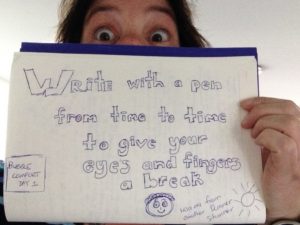 Write with a pen
from time to time
to give your
eyes and fingers
a break
Bubble
Comfort
Day 1
Words from
another